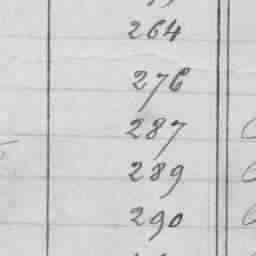 264
276
287
289
290